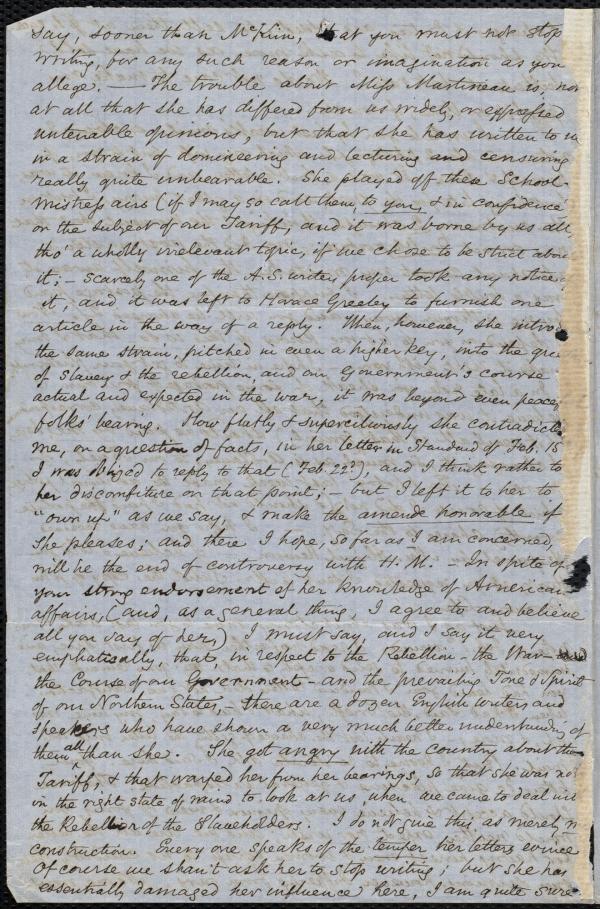 say, sooner than McKim, that you must not stop
writing, for any such reason or imagination as you
allege. — The trouble about Miss Martineau is, not
at all that she has differed from us widely, or expressed
untenable opinions, but that she has written to us
in a strain of domineering and lecturing and censuring
really quite unbearable. She played off these School-
mistress airs (if I may so call them, to you, & in confidence)
on the subject of our Tariff, and it was borne by us all,
tho' a wholly irrelevant topic, if we chose to be strict about
it; – scarcely one of the A.S. writers proper took any notice of
it, and it was left to Horace Greeley to furnish one
article in the way of a reply. When, however, she intro
the same strain, pitched in even a higher key, into the
of Slavery & the rebellion, and our Government's course
actual and expected in the war, it was beyond even peace
folks' bearing. How flatly & superciliously she contradicted
me, on a question of facts, in her letter in Standard of Feb. 15
I was obliged to reply to that (Feb. 22?), and I think rather to
her discomfiture on that point; – but I left it to her to
"own up" as we say, & make the amende honorable if
she pleases; and there I hope, so far as I am concerned,
will be the end of controversy with H. M. – In spite of
your strong endorsement of her knowledge of American
affairs, (and, as a general thing, I agree to and believe
all you say of her,) I must say, and I say it very
emphatically, that, in respect to the Rebellion – the War –
the Course of our Government – and the prevailing Tone & Spirit
of our Northern States, – there are a dozen English writers and
speakers who have shown a very much better understanding of
them all than she. She got angry with the country about the
Tariff, & that warped her from her bearings, so that she was not
in the right state of mind to look at us, when we came to deal with
the Rebellion of the Slaveholders. I do not give this as merely my
construction. Every one speaks of the temper her letters evince
Of course we shan't ask her to stop writing; but she has
essentially damaged her influence here, I am quite sure